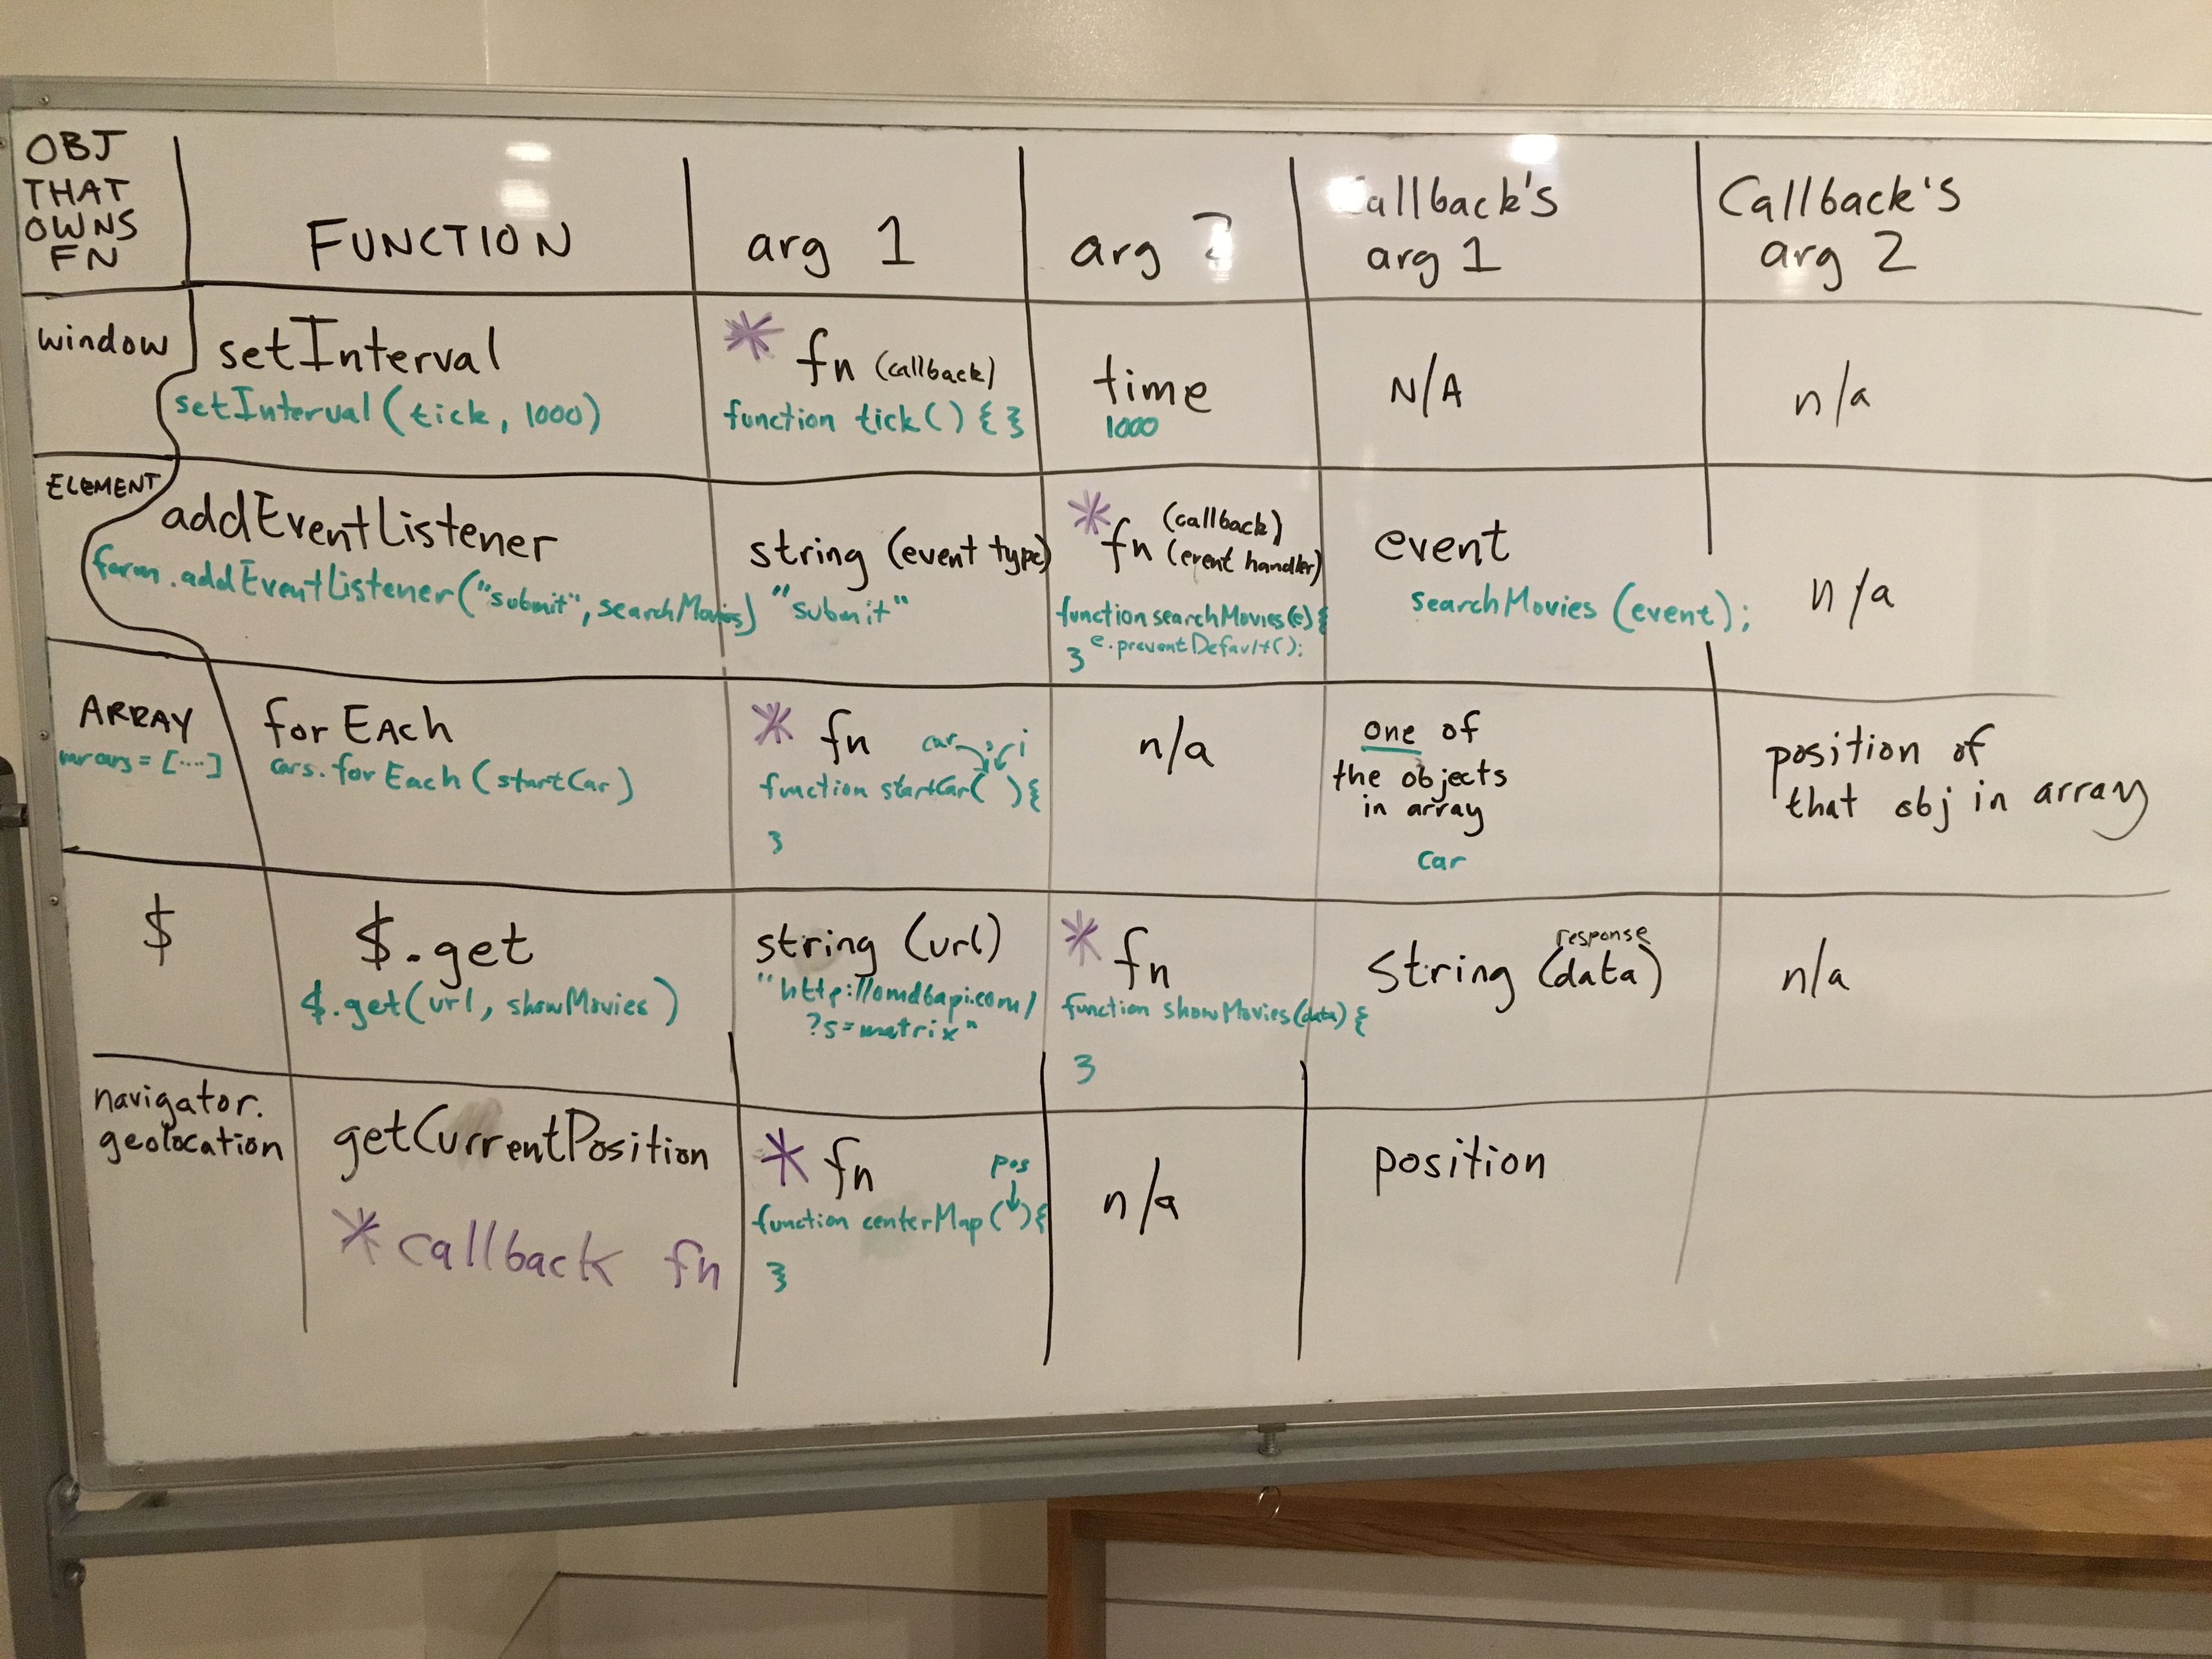 OBJ
THAT
OWNS
FN
FUNCTION
arg 1
arg 2
Callback's
arg 1
Callback's
arg 2
window
setInterval
setInterval(tick, 1000)
* fn (callback)
function tick() { }
time
1000
N/A
n/a
ELEMENT
addEventListener
form.addEventListener("submit", searchMovies)
string (event type)
"submit"
* fn (callback)
(event handler)
function searchMovies(e){
e.preventDefault();
}
event
searchMovies (event);
n/a
ARRAY
cars = [....]
forEach
cars.forEach(startCar)
* fn
car, i
function startCar( ){
}
n/a
one of
the objects
in array
car
position of
that obj in array
$
$.get
$.get(url, showMovies)
string (url)
"http://omdbapi.com/
?s=matrix"
* fn
function showMovies(data){
}
response
String (data)
n/a
navigator.
geolocation
getCurrentPosition
* callback fn
* fn
pos
function centerMap( ){
}
n/a
position